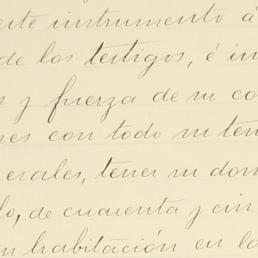 este instrumento á
de los testigos, é in
s y fuerza de su co
res con todo su ten
nerales, tener su dom
lo, de cuarenta y cin
n habitación en la